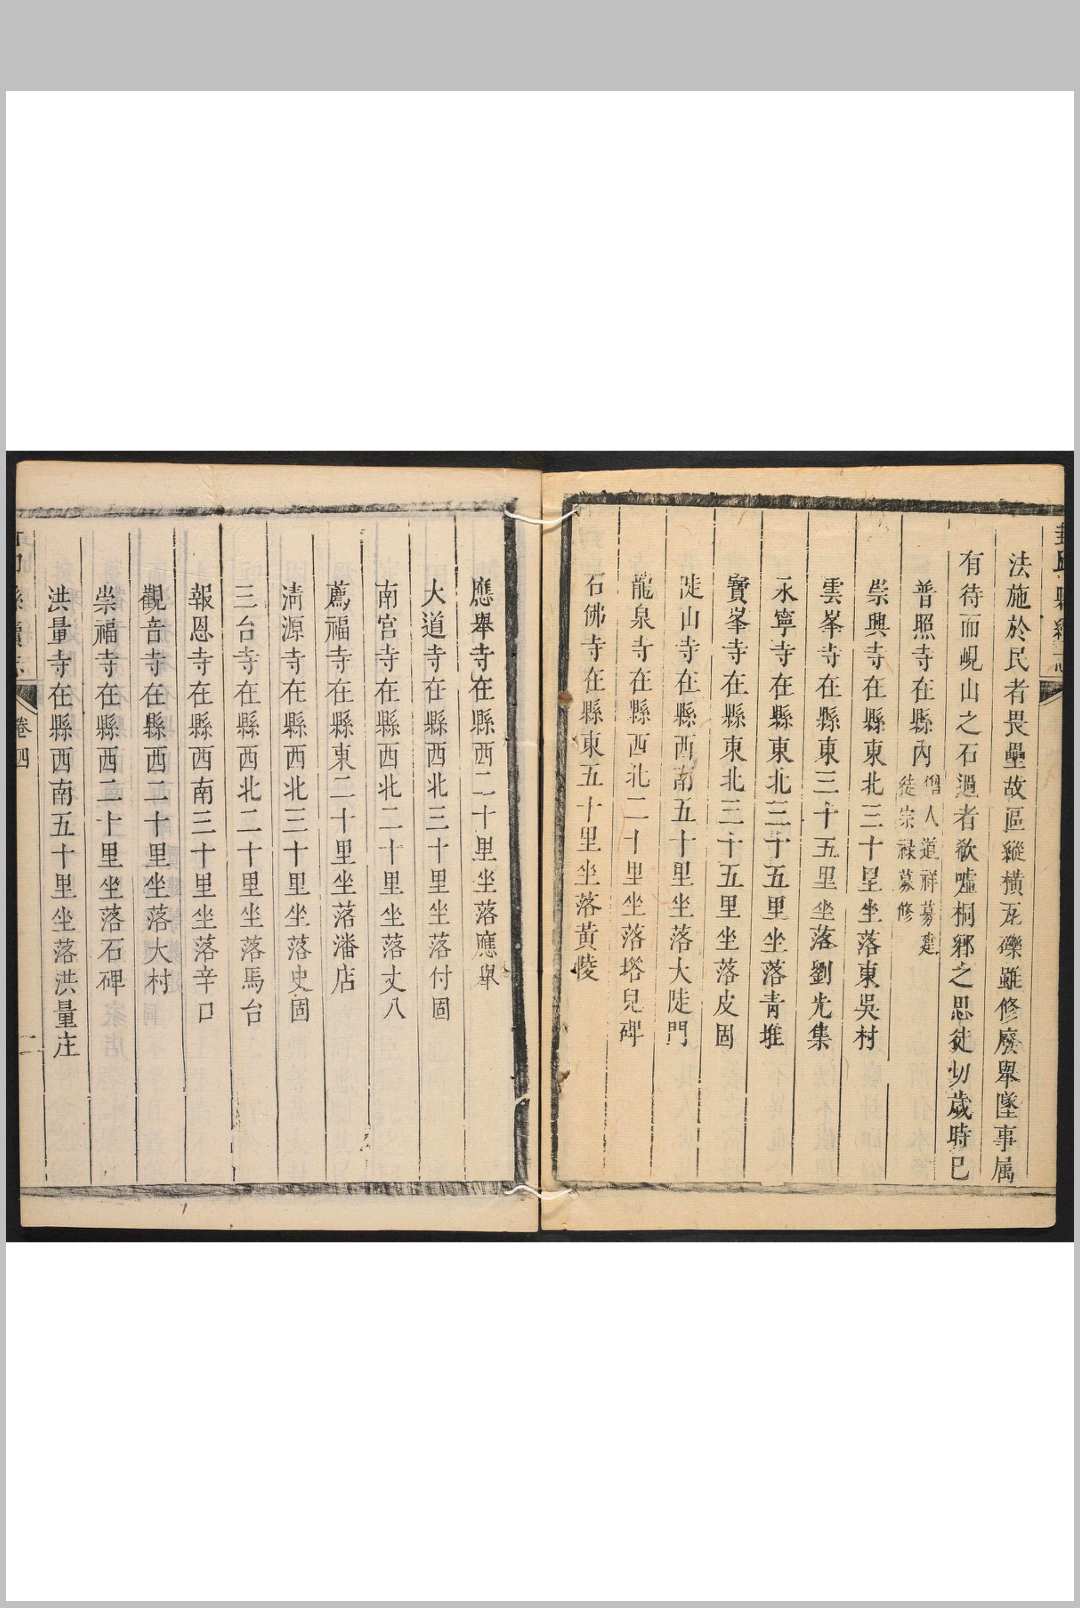 封邱縣續志
法施於民者畏壘故區縱橫瓦礫雖修廢舉墜事屬
有待而峴山之石過者欷噓桐鄉之思徒切歲時已
普照寺在縣內僧人道祥募建
徒宗祿募修
崇興寺在縣東北三十里坐落東吳村
雲峯寺在縣東三十五里坐落劉光集
永寧寺在縣東北三十五里坐落青堆
寶峯寺在縣東北三十五里坐落皮固
陡山寺在縣西南五十里坐落大陡門
龍泉寺在縣西北二十里坐落塔兒碑
石佛寺在縣東五十里坐落黃陵
應舉寺在縣西二十里坐落應舉
大道寺在縣西北三十里坐落付固
南宮寺在縣西北二十里坐落丈八
薦福寺在縣東二十里坐落潘店
清源寺在縣西北三十里坐落史固
三台寺在縣西北二十里坐落馬台
報恩寺在縣西南三十里坐落辛口
觀音寺在縣西二十里坐落大村
崇福寺在縣西二十里坐落石碑
洪量寺在縣西南五十里坐落洪量庄
縣續志
卷四
二